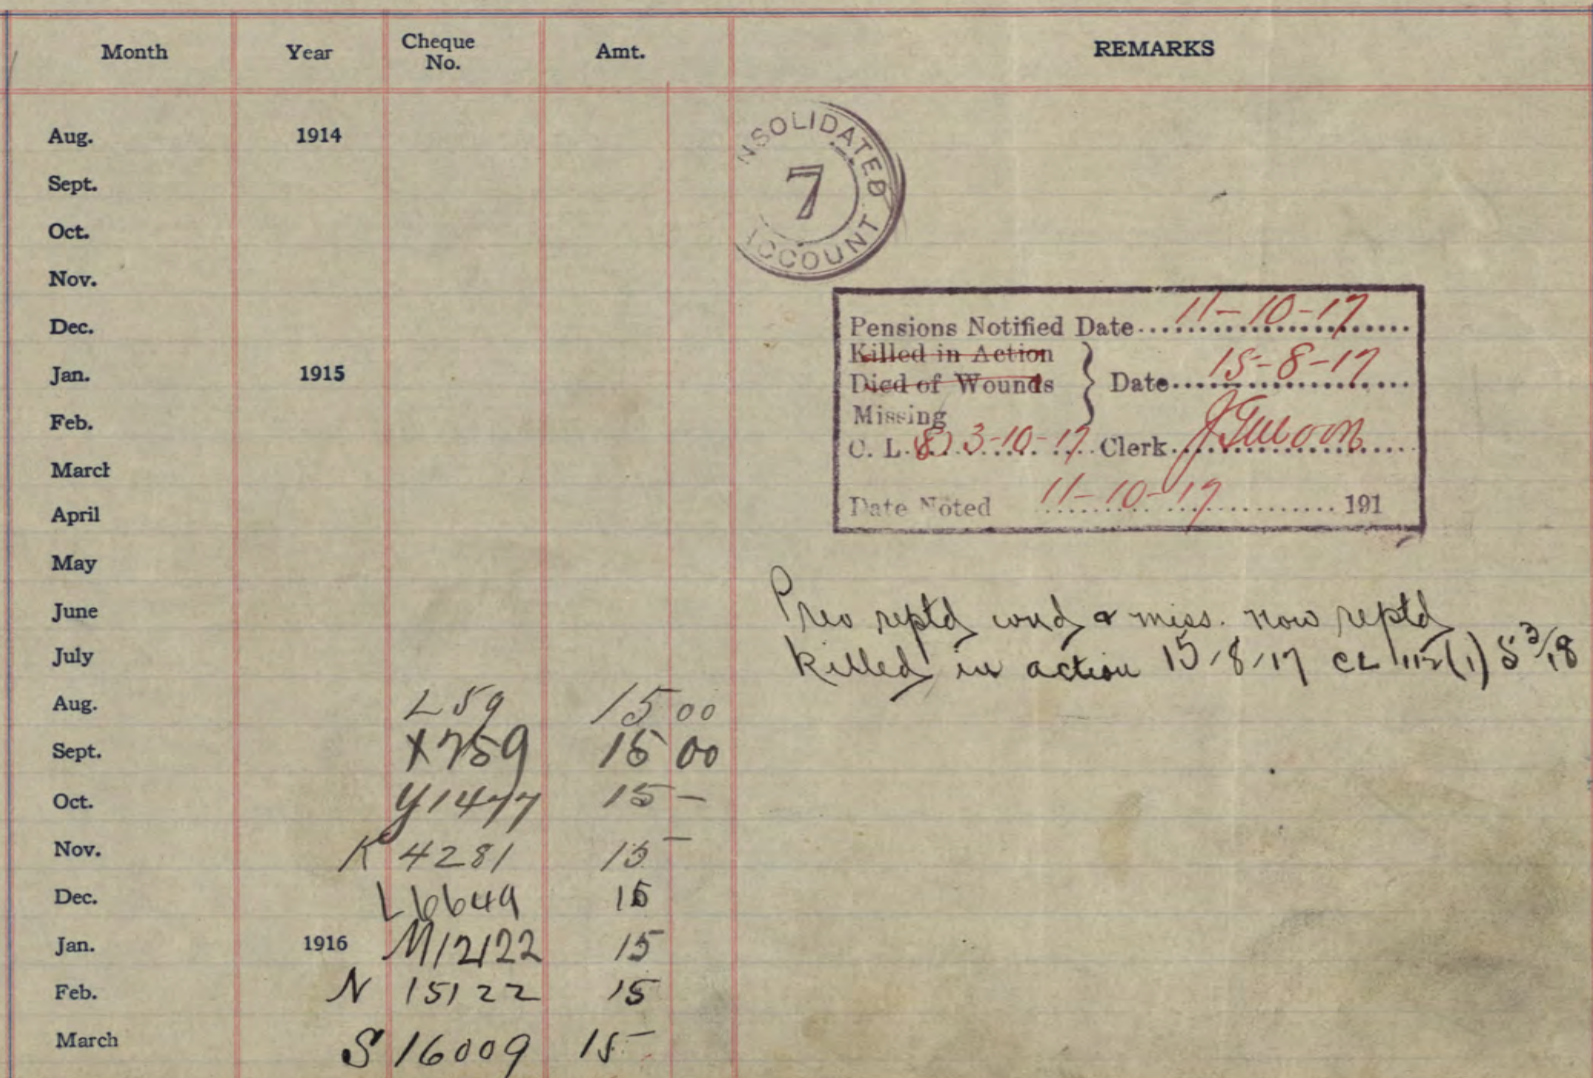 Month Year Cheque No. Amt. REMARKS
Aug. 1914
Sept.
Oct.
Nov.
Dec.
Jan. 1915
Feb.
March
April
May
June
July
Aug. L 59 15 00
Sept. X759 15 00
Oct. Y1477 15 —
Nov. K 4281 15 —
Dec. L6649 15
Jan. 1916 M12122 15
Feb. N 15122 15
March S 16009 15 —
NSOLIDATED
7
ACCOUNT
Pensions Notified Date 11-10-17
Killed in Action
Died of Wounds } Date 15-8-17
Missing
C. L. 3-10-17 Clerk
Date Noted 11-10-17 191
Prev reptd wnd & miss. now reptd
killed in action 15-8-17 CL 112(1) 5 3/18